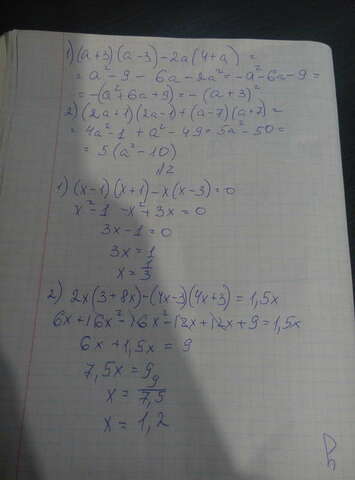 1) (a+3)(a-3)-2a(4+a)=
= a²-9 - 6a-2a²=-a²-6a-9=
= -(a²+6a+9)=-(a+3)²
2) (2a+1)(2a-1)+(a-7)(a+7)=
= 4a²-1 + a²-49=5a²-50=
= 5(a²-10)
№2
1) (x-1)(x+1)-x(x-3)=0
x²-1 -x²+3x=0
3x-1=0
3x=1
x=1/3
2) 2x(3+8x)-(4x-3)(4x+3)=1,5x
6x+16x²-16x²-12x+12x+9=1,5x
6x+1,5x=9
7,5x=9
x=9/7,5
x=1,2